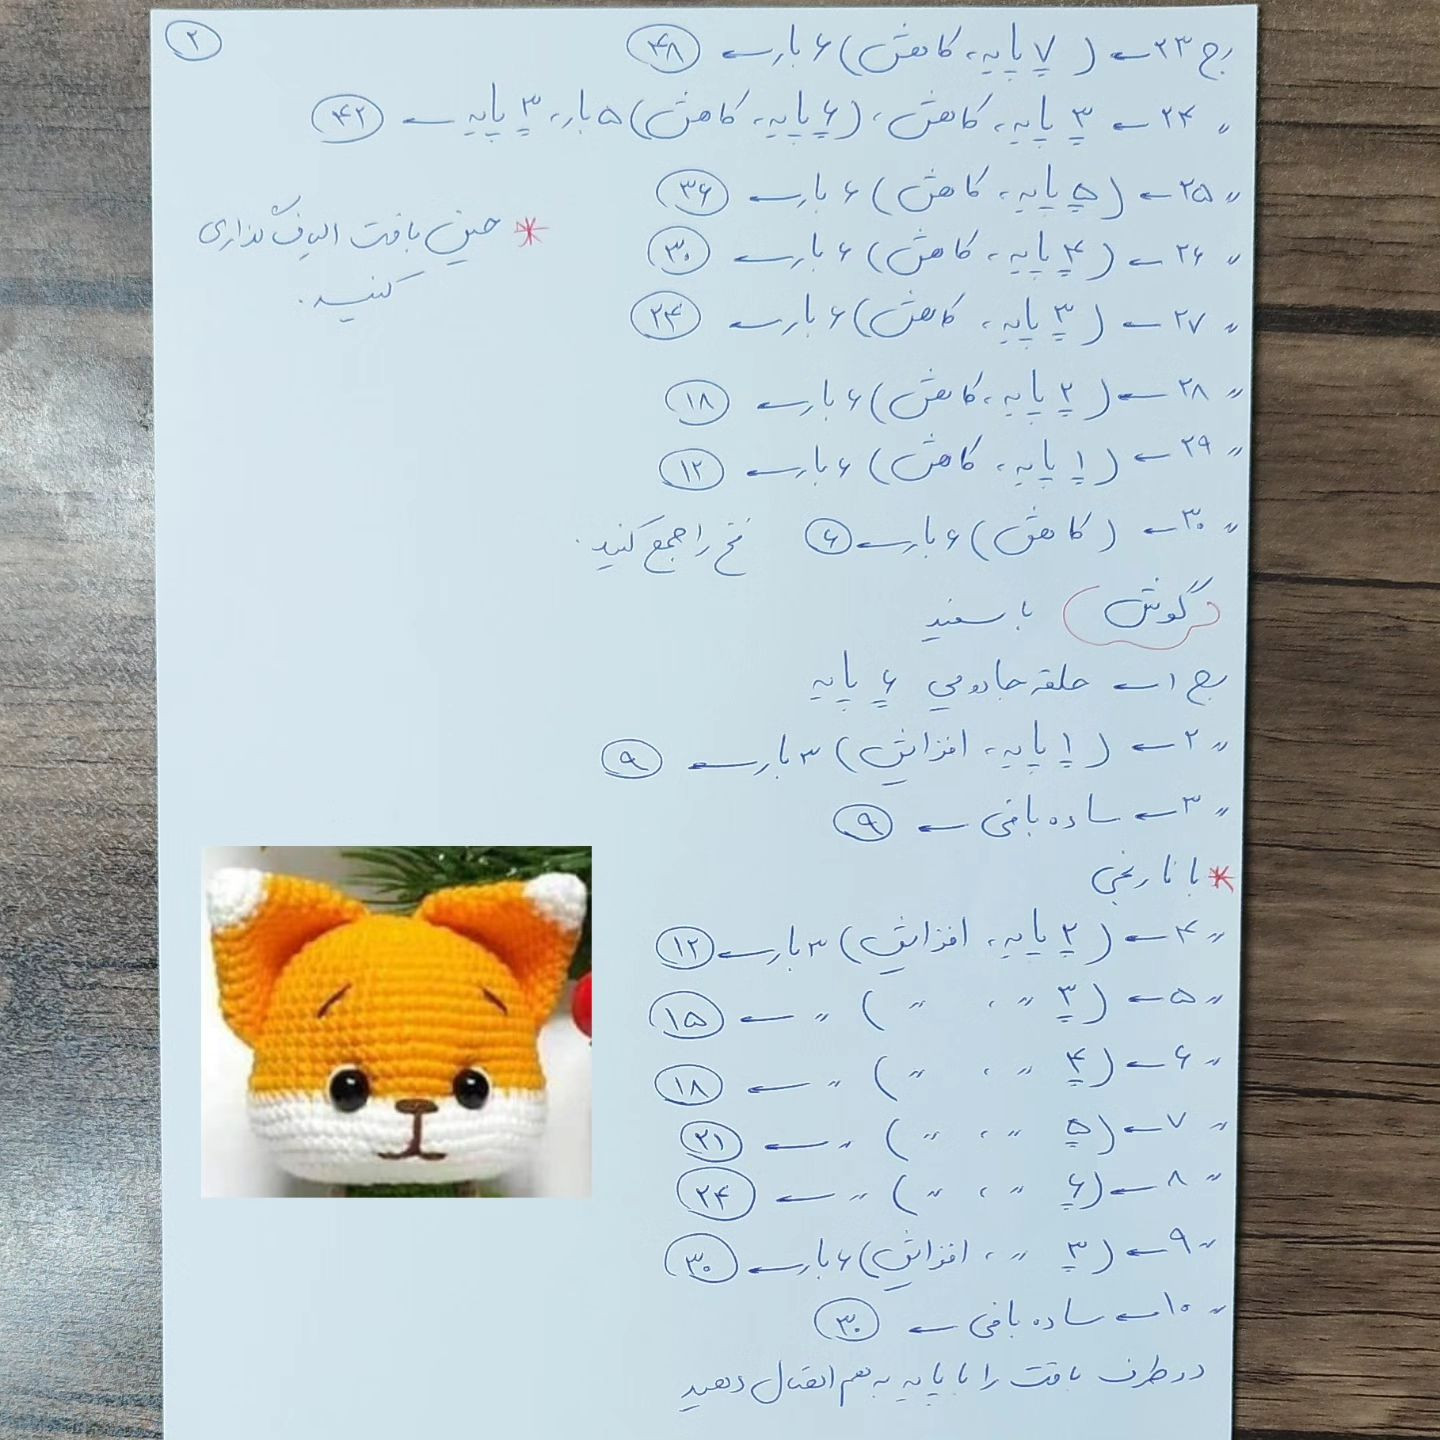 ۲
رج ۲۳ ← (۷ پایه، کاهش) ۶ بار ← ۴۸
〃 ۲۴ ← ۳ پایه، کاهش، (۶ پایه، کاهش) ۵ بار، ۳ پایه ← ۴۲
〃 ۲۵ ← (۵ پایه، کاهش) ۶ بار ← ۳۶
* حین بافت الیاف گذاری
کنید.
〃 ۲۶ ← (۴ پایه، کاهش) ۶ بار ← ۳۰
〃 ۲۷ ← (۳ پایه، کاهش) ۶ بار ← ۲۴
〃 ۲۸ ← (۲ پایه، کاهش) ۶ بار ← ۱۸
〃 ۲۹ ← (۱ پایه، کاهش) ۶ بار ← ۱۲
〃 ۳۰ ← (کاهش) ۶ بار ← ۶ نخ را جمع کنید.
گوش با سفید
رج ۱ ← حلقه جادویی ۶ پایه
〃 ۲ ← (۱ پایه، افزایش) ۳ بار ← ۹
〃 ۳ ← ساده بافی ← ۹
* با نارنجی
〃 ۴ ← (۲ پایه، افزایش) ۳ بار ← ۱۲
〃 ۵ ← (۳ 〃 ، 〃) 〃 ← ۱۵
〃 ۶ ← (۴ 〃 ، 〃) 〃 ← ۱۸
〃 ۷ ← (۵ 〃 ، 〃) 〃 ← ۲۱
〃 ۸ ← (۶ 〃 ، 〃) 〃 ← ۲۴
〃 ۹ ← (۳ 〃 ، افزایش) ۶ بار ← ۳۰
〃 ۱۰ ← ساده بافی ← ۳۰
دو طرف بافت را با پایه به هم اتصال دهید